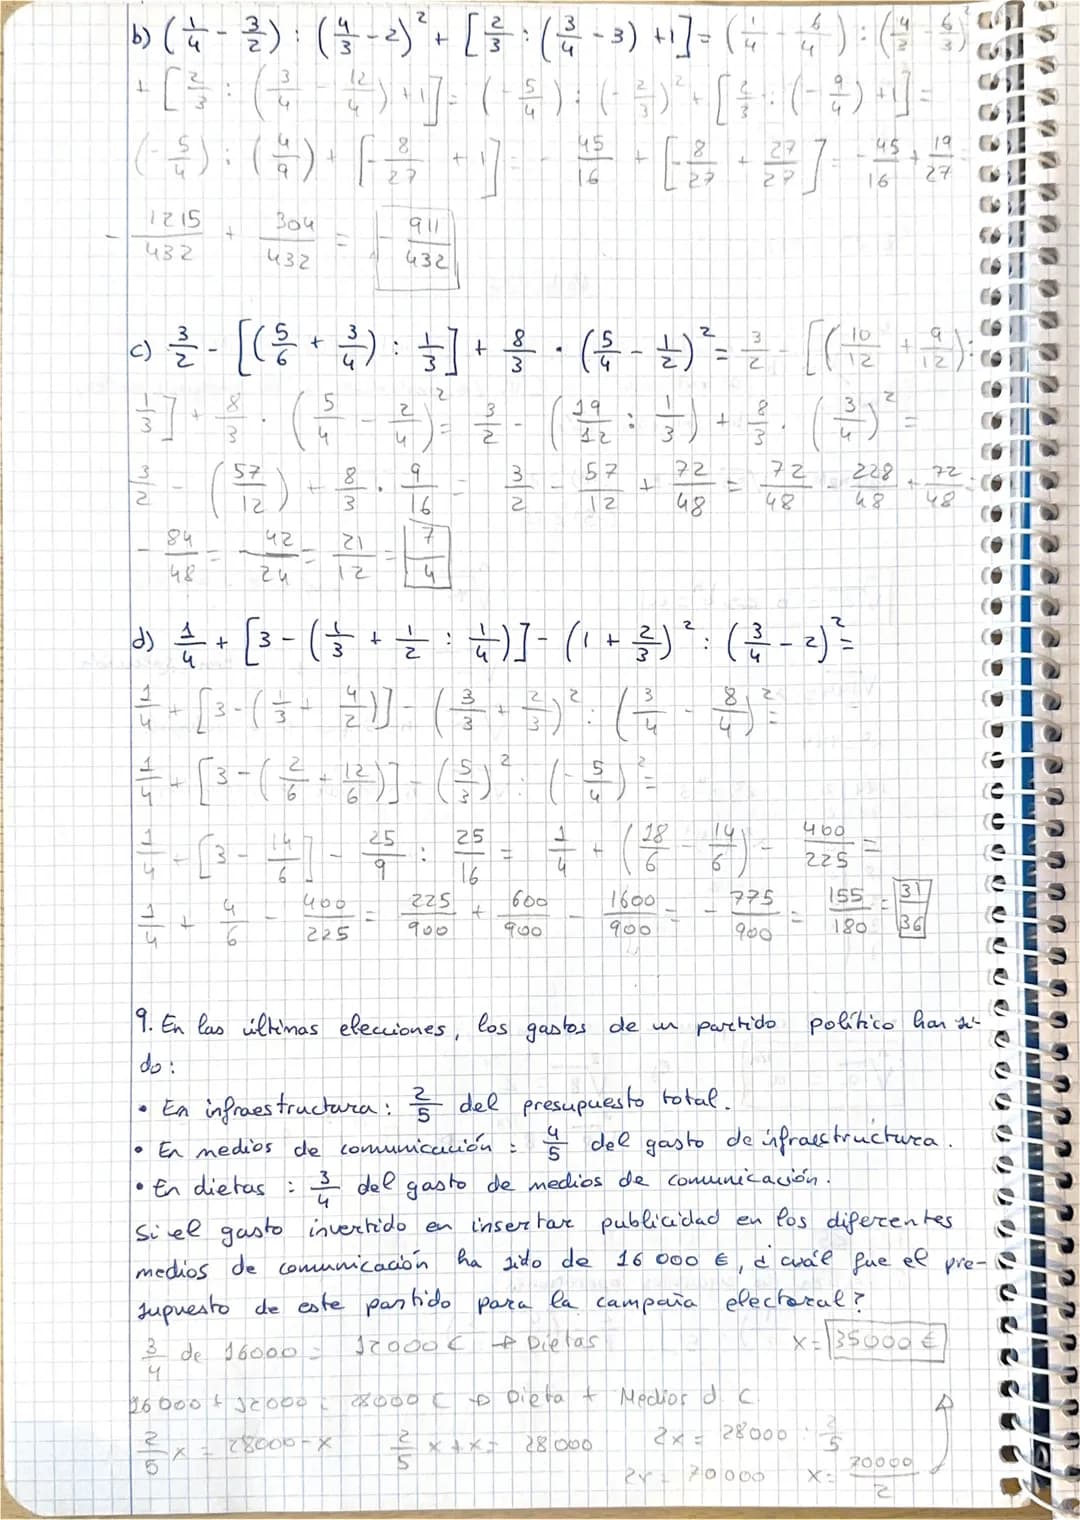 b) (1/4 - 3/2) : (4/3 - 2)² + [2/3 : (3/4 - 3) + 1] = (1/4 - 6/4) : (4/3 - 6/3)²
+ [2/3 : (3/4 - 12/4) + 1] = (-5/4) : (-2/3)² + [2/3 : (-9/4) + 1] =
(-5/4) : (4/9) + [-8/27 + 1] = - 45/16 + [-8/27 + 27/27] = - 45/16 + 19/27 =
- 1215/432 + 304/432 = - 911/432
c) 3/2 - [(5/6 + 3/4) : 1/3] + 8/3 · (5/4 - 1/2)² = 3/2 - [(10/12 + 9/12) :
1/3] + 8/3 · (5/4 - 2/4)² = 3/2 - (19/12 : 1/3) + 8/3 · (3/4)² =
3/2 - (57/12) + 8/3 · 9/16 = 3/2 - 57/12 + 72/48 = 72/48 - 228/48 + 72/48 =
- 84/48 = - 42/24 = 21/12 = 7/4
d) 1/4 + [3 - (1/3 + 1/2 : 1/4)] - (1 + 2/3)² : (3/4 - 2)² =
1/4 + [3 - (1/3 + 4/2)] - (3/3 + 2/3)² : (3/4 - 8/4)² =
1/4 + [3 - (2/6 + 12/6)] - (5/3)² : (-5/4)² =
1/4 - [3 - 14/6] - 25/9 : 25/16 = 1/4 + (18/6 - 14/6) - 400/225 =
1/4 + 4/6 - 400/225 = 225/900 + 600/900 - 1600/900 = - 775/900 = 155/180 = 31/36
9. En las últimas elecciones, los gastos de un partido político han si-
do:
• En infraestructura: 2/5 del presupuesto total.
• En medios de comunicación : 4/5 del gasto de infraestructura.
• En dietas : 3/4 del gasto de medios de comunicación.
Si el gasto invertido en insertar publicidad en los diferentes
medios de comunicación ha sido de 16 000 €, ¿ cuál fue el pre-
supuesto de este partido para la campaña electoral?
3/4 de 16000 = 12000 € → Dietas x = 35000 €
16000 + 12000 = 28000 € → Dieta + Medios d. C.
2/5 x = 28000 - x 2/5 x + x = 28000 2x = 28000 : 2/5
2x = 70000 x = 70000/2